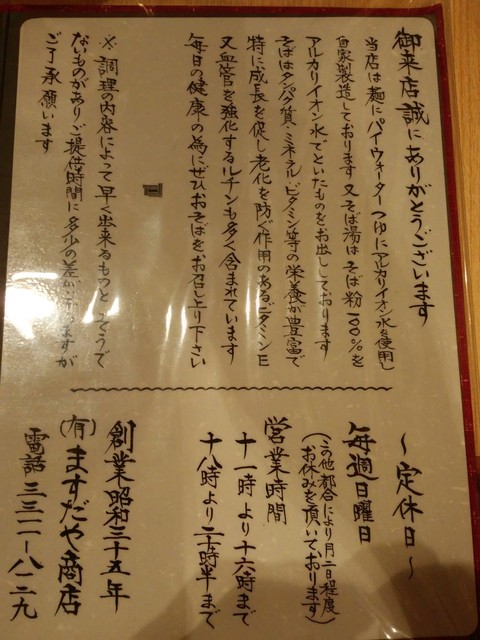 御来店誠にありがとうございます
当店は麺にパイウォーターつゆにアルカリイオン水を使用し
自家製造しております又そば湯はそば粉100%を
アルカリイオン水でといたものをお出ししております
そばはタンパク質・ミネラル・ビタミン等の栄養が豊富で
特に成長を促し老化を防ぐ作用のあるビタミンE
又血管を強化するルチンも多く含まれています
毎日の健康の為にぜひおそばをお召し上り下さい
※調理の内容によって早く出来るものと そうで
ないものがありご提供時間に多少の差が ますが
ご了承願います
〜定休日〜
毎週日曜日
(この他都合により月二日程度
お休みを頂いております)
営業時間
十一時より十六時まで
十八時より二十時半まで
創業昭和三十五年
(有)ますだや商店
電話 三三一一-八一二九